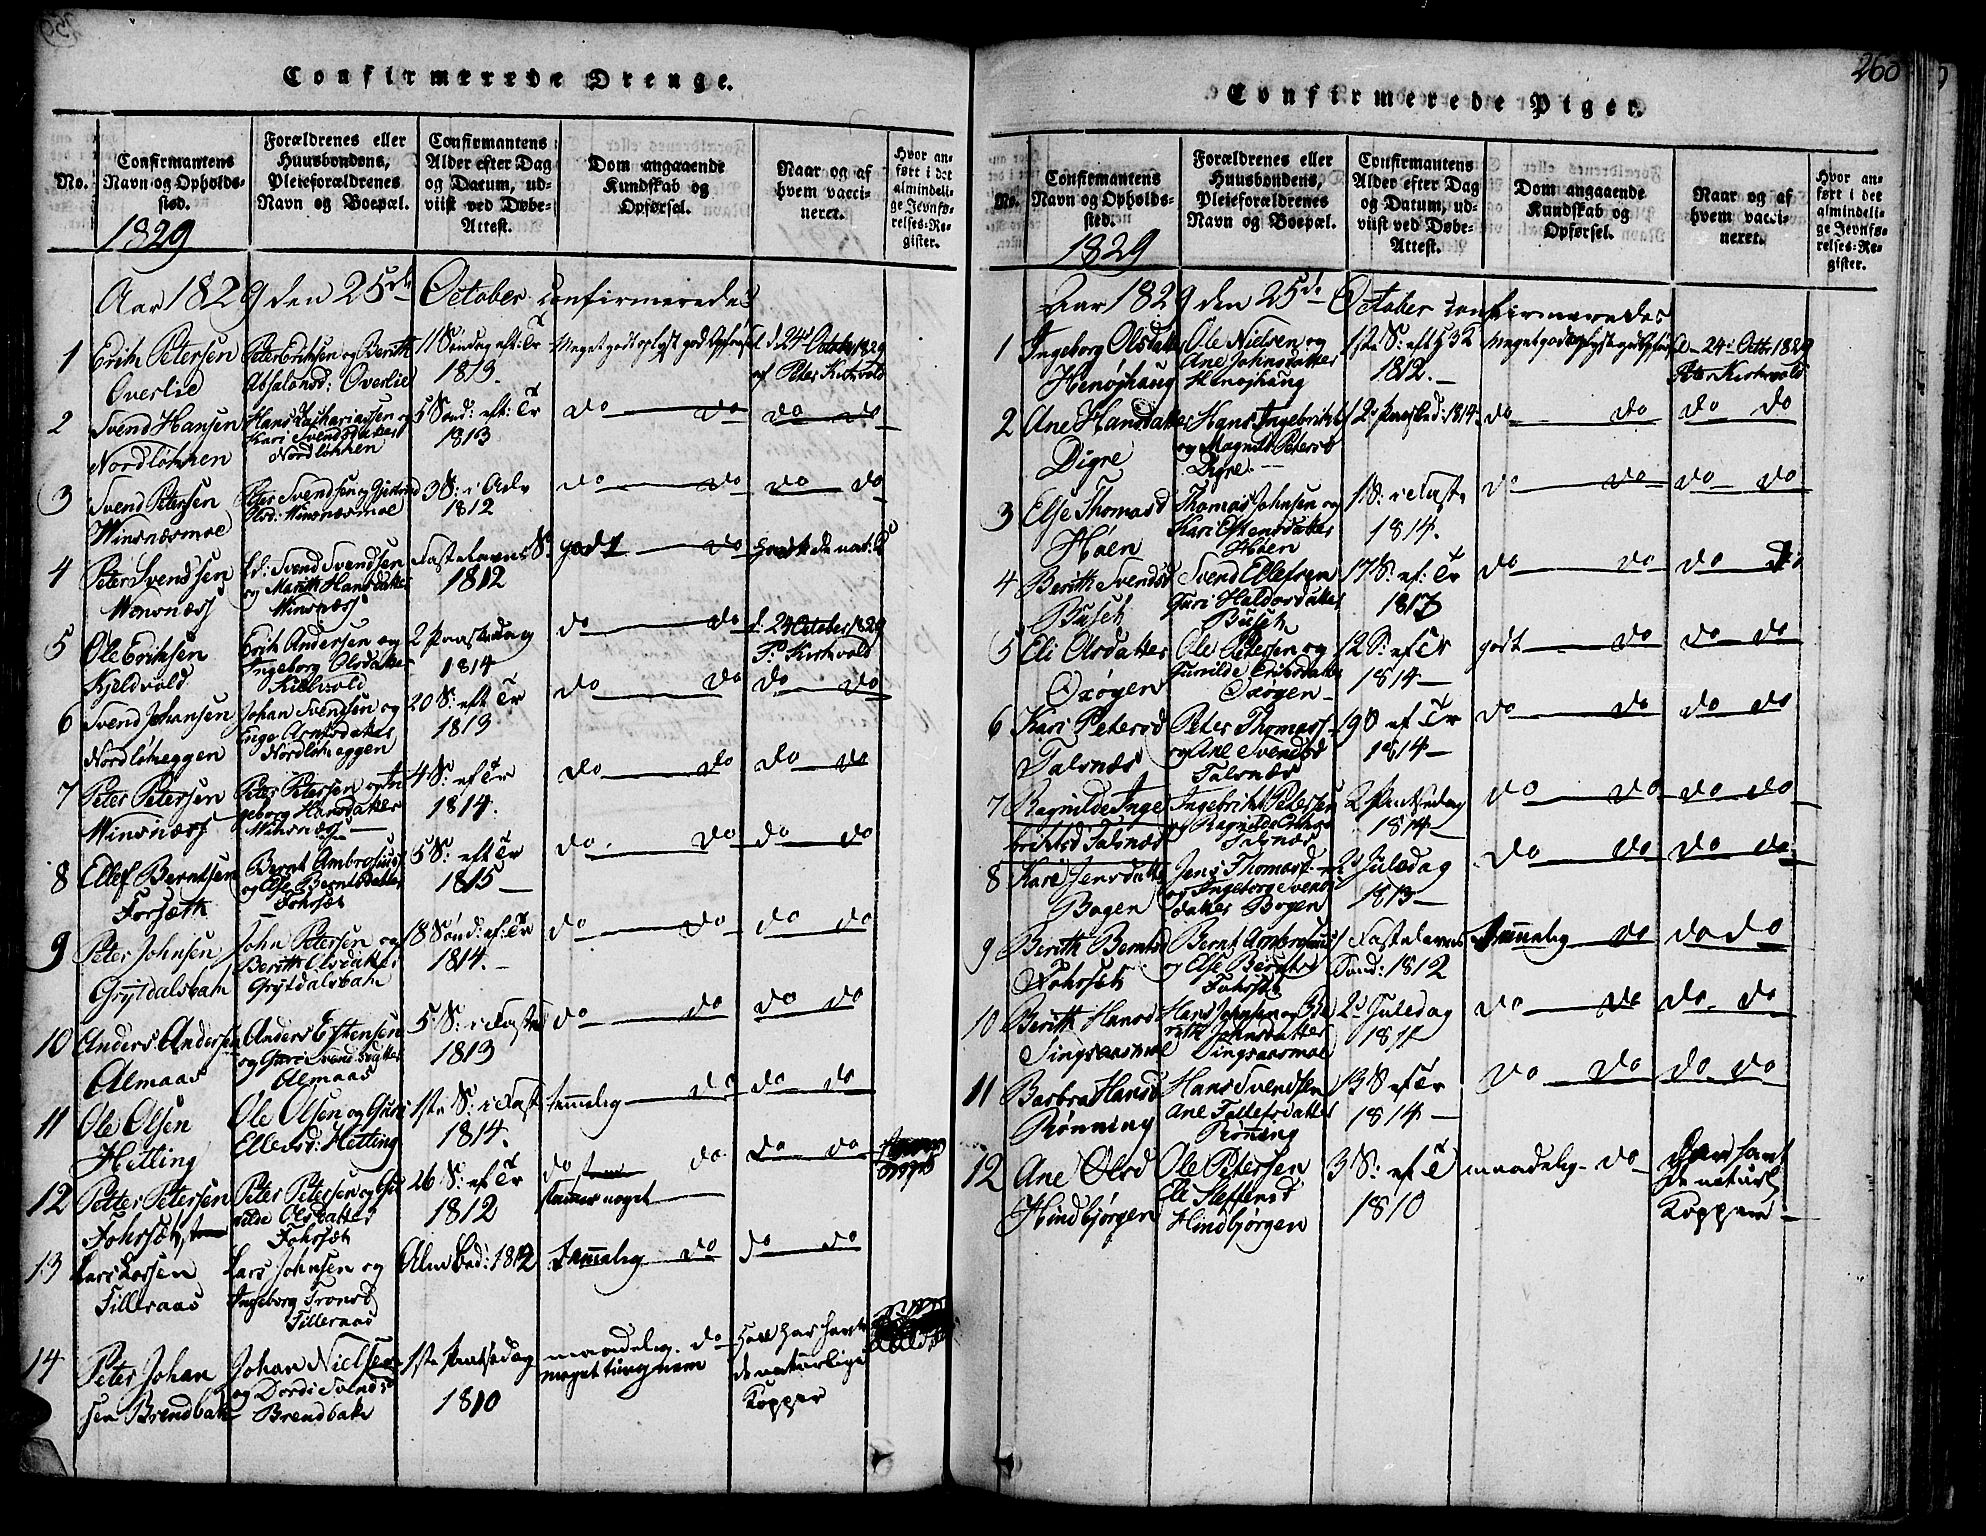 Confirmerede Drenge.
No.
Confirmantens
Navn og Opholds-
sted.
1829
Forældrenes eller
Huusbondens,
Pleieforældrenes
Navn og Boepæl.
Confirmantens
Alder efter Dag
og Datum, ud-
viist ved Døbe-
Attest.
Dom angaaende
Kundskab og
Opførsel.
Naar og af
hvem vacci-
neret.
Hvor an-
ført i det
almindeli-
ge Jevnfø-
relses-Re-
gister.
Aar 1829 den 25de October Confirmeredes
1 Erich Petersen
Overlie
Peter Erichsen og Berith
Absalonsd: Overlie
11 Søndag eft: Tr
1813.
Meget godt oplyst god Opførsel
d 24d October 1829
af Peter Kirkvold
2 Svend Hansen
Nordløkken
Hans Zachariassen og
Kari Svendsdatter
Nordløkken
5 Sønd: eft: Tr
1813
do do
do do
3 Svend Petersen
Winsnæsmoe
Peter Svendsen og
Olsd: Winsnæsmoe
3 S: i Adv
1812
do do
do do
4 Peter Svendsen
Winsnæss
Svend Svendsen
og Marith Hansdatter
Winsnæss
Fastelavns S:
1812
godt do
5 Ole Erichsen
Kjeldvold
Erich Andersen og
Ingeborg Olsdatter
Killvold
2 Paaskedag
1814
do do
d. 24 October 1829
P. Kirkvold
6 Svend Johansen
Nordløkeggen
Johan Svendsen og
Nordløkeggen
20 S: eft Tr
1813
do do
do do
7 Peter Petersen
Winsnæss
Peter Petersen og In
geborg Hansdatter
Winsnæss
4 S: ef Tr
1814.
do do
do do
8 Ellef Berntsen
Forsæth
Bernt Ambrosius
og Else Berntsdatter
Fohrsæt
5 S: eft Tr
1815
do do
do do
9 Peter Johnsen
Grytdalsbak
John Petersen og
Berith Olsdatter
Grytdalsbak
18 Sønd: ef: Tr
1814.
do do
do do
10 Anders Andersen
Almaas
Anders Estensen
og Guri Svendsdatter
Almaas
5 S: i Faste
1813
do do
do do
11 Ole Olsen
Hetting
Ole Olsen og Guri
Ellevsd: Hetting
1ste S: i Fast
1814.
temmelig do
do do
12 Petter Petersen
Fohrsæt
Peter Petersen og Gu
Olsdatter
Fohrsæt
26 S: ef Tr
1812
do do
stammer noget
do do
13 Lars Larsen
Tilleraas
Lars Johnsen og
Ingeborg Tronsd
Tilleraas
1812
temmelig do
do do
14 Peter Johan
sen Brendbak
Johan Nielsen
og Dordi Svendsd
Brendbak
1ste Paaskedag
1810
maadelig do
meget tungnem
de naturlige
Kopper
260
Confirmerede Piger.
No.
Confirmantens
Navn og Opholds-
sted.
1829
Forældrenes eller
Huusbondens,
Pleieforældrenes
Navn og Boepæl.
Confirmantens
Alder efter Dag
og Datum, ud-
viist ved Døbe-
Attest.
Dom angaaende
Kundskab og
Opførsel.
Naar og af
hvem vacci-
neret.
Hvor an-
ført i det
almindeli-
ge Jevnfø-
relses-Re-
gister.
Aar 1829 den 25de October Confirmeredes
1 Ingeborg Olsdatter
Ole Nielsen og
Ane Johnsdatter
1812.
24d Octbr 1829
Peter Kirkvold
2 Ane Hansdatter
Digre
Hans Ingebrikts
og Magnild Petersd
Digre.
1814
do do
do do
3 Else Thomasd
Høen
Thomas Johnsen og
Kari Estensdatter
Høen
1 S: i Fast.
1814.
do do
do do
4 Berith Svendsd
Busch
Svend Ellefsen
Guri Haldorsdatter
Busch
17 S: ef: Tr
1813
do do
do do
5 Eli Olsdatter
Oxøgen
Ole Petersen og
Gunilde Erichsdatter
Oxøgen
12 S: ef Tr
1814
godt do
do do
6 Kari Petersd
Talsnæs
Peter Thomass
og Ane Svendsd
Talsnæs
19 ef Tr
1814
do do
do do
7 Ragnilde Inge
briktsd Talsnæs
Ingebrikt Petersen
Talsnæs
2 Paaskedag
1814
do do
do do
8 Kari Jensdatter
Bogen
Jens Thomas
og Ingeborg Svends
datter Bogen
2 Juledag
1813
do do
do do
9 Berith Berntsd
Fohrsæt
Bernt Ambrosius
og Else Bernts
Fohrsæt
Fastelavns
Sønd: 1812
temmelig do
do do
10 Berith Hansd
Singsaasmoe
Hans Johnsen og Be
rith Johnsdatter
Singsaasmoe
2d Juledag
1811
do do
do do
11 Barbra Hansd
Rønning
Hans Svendsen
Ane Tollefsdatter
Rønning
13 S ef Tr
1814
do do
do do
12 Ane Olsd
Hindbjørgen
Ole Petersen
Eli Steffensd
Hindbjørgen
3 S: ef T
1810
maadelig do
de naturl
Kopper